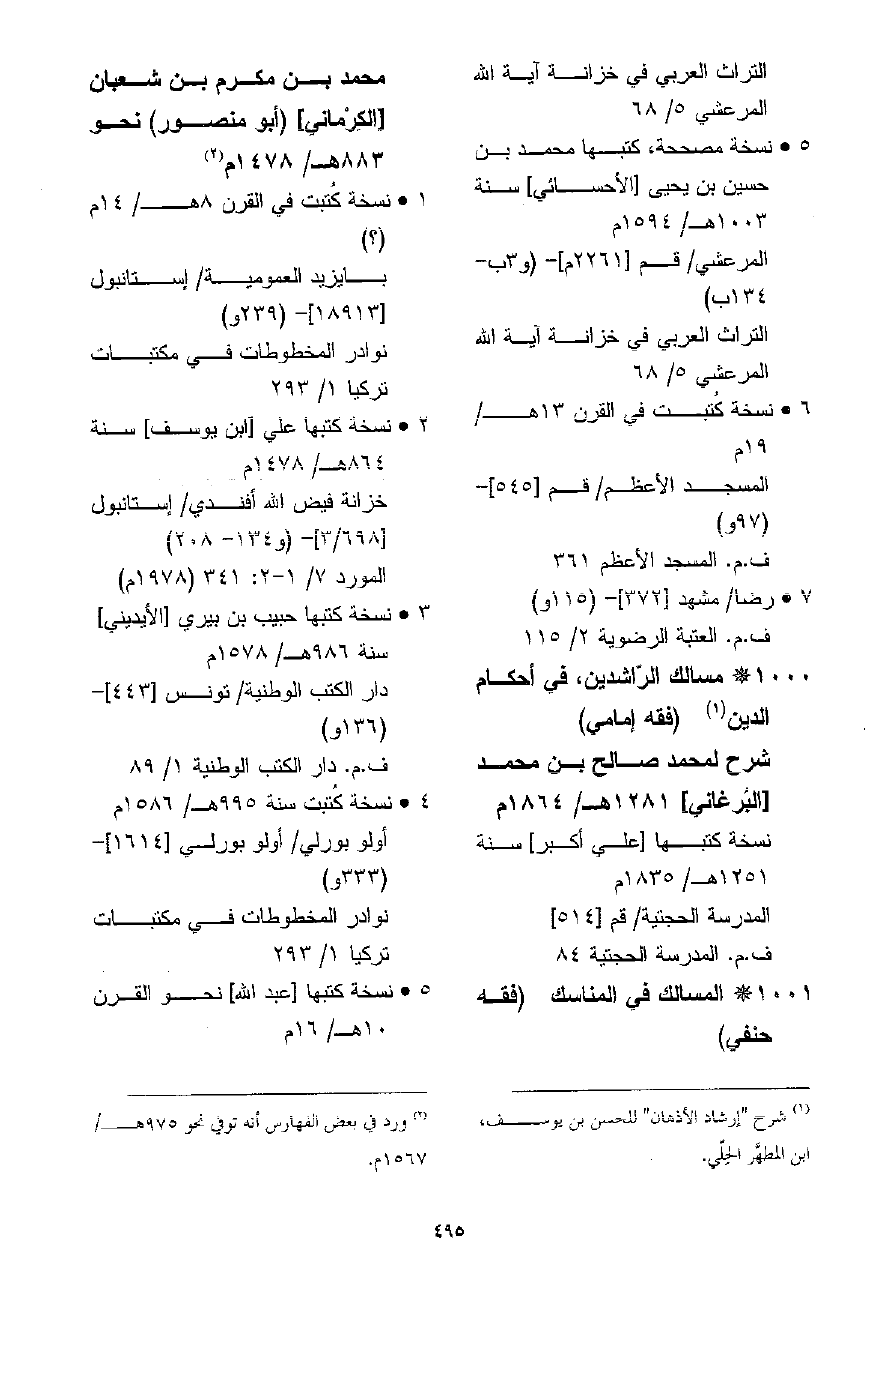 التراث العربي في خزانة آية الله
المرعشي ٥/ ٦٨
٥ • نسخة مصححة، كتبها محمد بن
حسين بن يحيى [الأحسائي] سنة
١٠٠٣هـ/ ١٥٩٤م
المرعشي/ قم [٢٢٦١م]– (و٣ب–
١٣٤ب)
التراث العربي في خزانة آية الله
المرعشي ٥/ ٦٨
٦ • نسخة كُتبت في القرن ١٣هـ/
١٩م
المسجد الأعظم/ قم [٥٤٥]–
(٩٧و)
ف.م. المسجد الأعظم ٣٦١
٧ • رضا/ مشهد [٣٧٢]– (١١٥و)
ف.م. العتبة الرضوية ٢/ ١١٥
١٠٠٠* مسالك الرّاشدين، في أحكام
الدين(١) (فقه إمامي)
شرح لمحمد صالح بن محمد
[البُرغاني] ١٢٨١هـ/ ١٨٦٤م
نسخة كتبها [علي أكبر] سنة
١٢٥١هـ/ ١٨٣٥م
المدرسة الحجتية/ قم [٥١٤]
ف.م. المدرسة الحجتية ٨٤
١٠٠١* المسالك في المناسك (فقه
حنفي)
محمد بن مكرم بن شعبان
[الكَرْماني] (أبو منصور) نحو
٨٨٣هـ/ ١٤٧٨م(٢)
١ • نسخة كُتبت في القرن ٨هـ/ ١٤م
(؟)
بايزيد العمومية/ إستانبول
[١٨٩١٣]– (٢٣٩و)
نوادر المخطوطات في مكتبات
تركيا ١/ ٢٩٣
٢ • نسخة كتبها علي [ابن يوسف] سنة
٨٦٤هـ/ ١٤٧٨م
خزانة فيض الله أفندي/ إستانبول
[٣/٦٩٨]– (و١٣٤– ٢٠٨)
المورد ٧/ ١–٢: ٣٤١ (١٩٧٨م)
٣ • نسخة كتبها حبيب بن بيري [الأيديني]
سنة ٩٨٦هـ/ ١٥٧٨م
دار الكتب الوطنية/ تونس [٤٤٣]–
(١٣٦و)
ف.م. دار الكتب الوطنية ١/ ٨٩
٤ • نسخة كُتبت سنة ٩٩٥هـ/ ١٥٨٦م
أولو بورلي/ أولو بورلي [١٦١٤]–
(٣٣٣و)
نوادر المخطوطات في مكتبات
تركيا ١/ ٢٩٣
٥ • نسخة كتبها [عبد الله] نحو القرن
١٠هـ/ ١٦م
(١) شرح "إرشاد الأذهان" للحسن بن يوسف،
ابن المطهَّر الحِلّي.
(٢) ورد في بعض الفهارس أنه توفي نحو ٩٧٥هـ/
١٥٦٧م.
٤٩٥